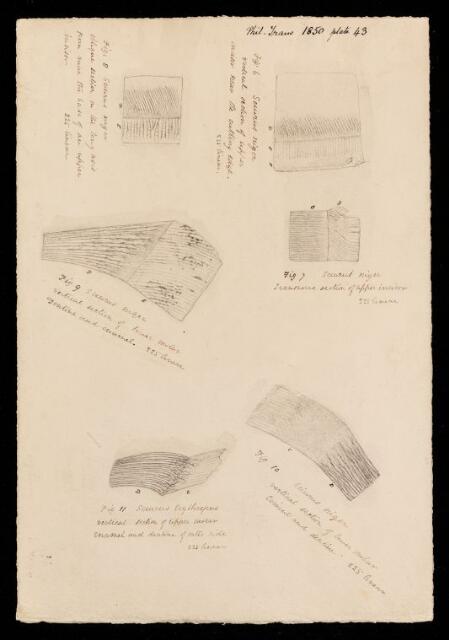 Phil. Trans 1850 plate 43
Fig. 8 Sciurus niger
oblique section in the long axis
from near the base of an upper
incisor.
225 linear
Fig. 6 Sciurus niger
vertical section of upper
incisor near the cutting edge.
225 linear.
Fig 7 Sciurus niger
Transverse section of upper incisor
225 linear
Fig 9 Sciurus niger
vertical section of lower molar
dentine and enamel. 225 linear
Fig 10 Sciurus niger
vertical section of lower molar
enamel and dentine. 225 linear
Fig 11 Sciurus Erythropus
vertical section of upper molar
Enamel and dentine of outer side
225 linear